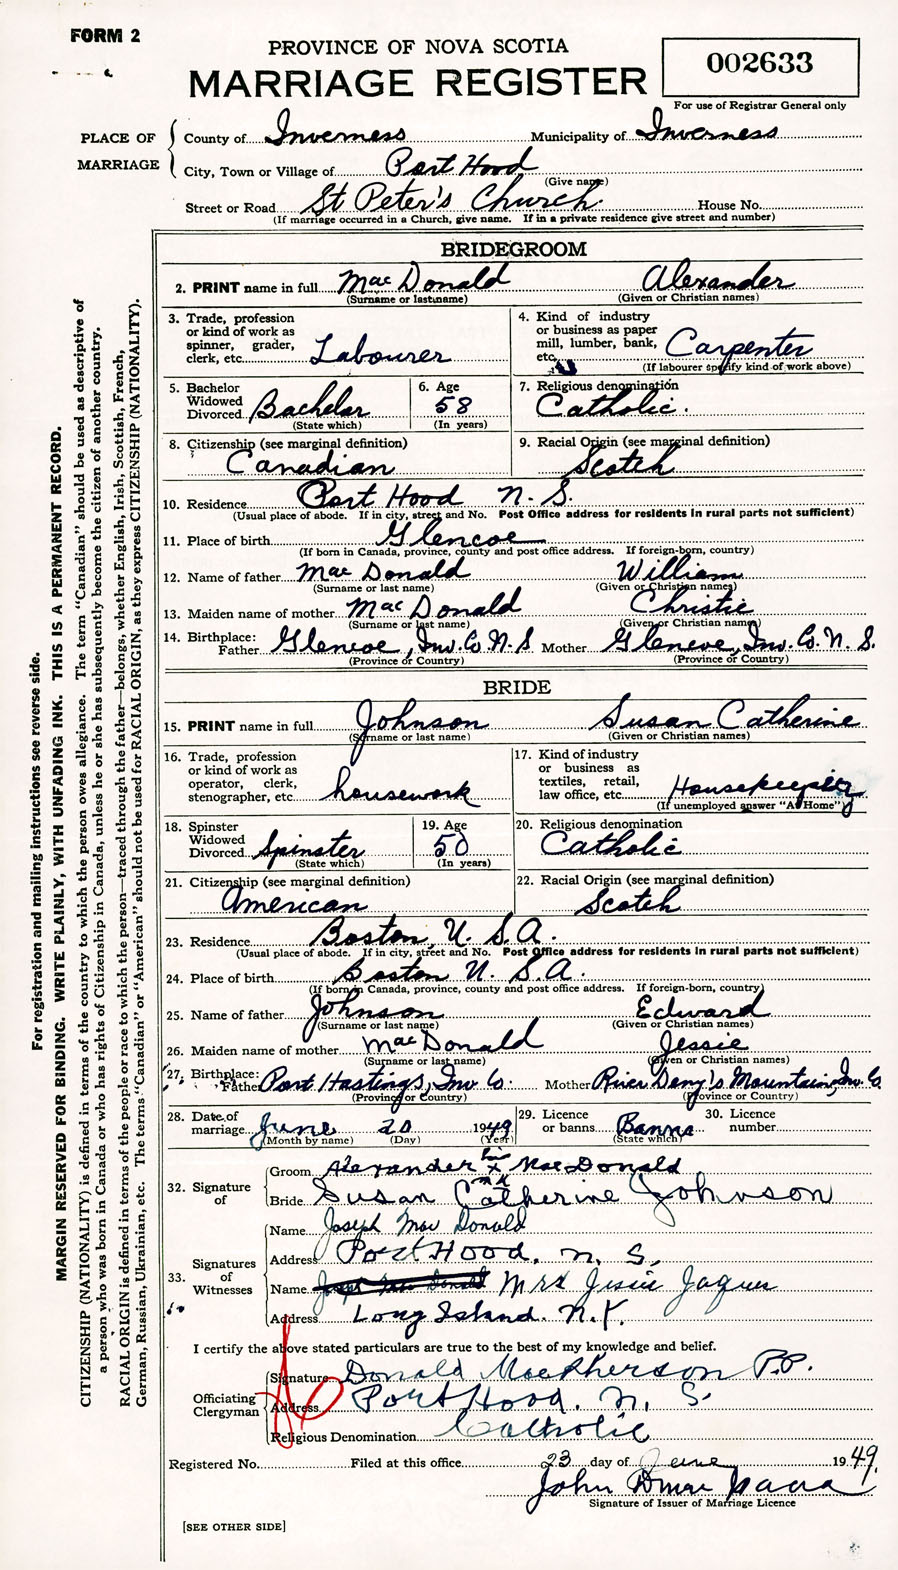 FORM 2
PROVINCE OF NOVA SCOTIA
MARRIAGE REGISTER
002633
For use of Registrar General only
PLACE OF MARRIAGE
County of Inverness Municipality of Inverness
City, Town or Village of Port Hood
(Give name)
Street or Road St Peter's Church House No.
(If marriage occurred in a Church, give name. If in a private residence give street and number)
BRIDEGROOM
2. PRINT name in full Mac Donald Alexander
(Surname or last name) (Given or Christian names)
3. Trade, profession or kind of work as spinner, grader, clerk, etc. Labourer
4. Kind of industry or business as paper mill, lumber, bank, etc. Carpenter
(If labourer specify kind of work above)
5. Bachelor Widowed Divorced Bachelor
(State which)
6. Age 58
(In years)
7. Religious denomination Catholic.
8. Citizenship (see marginal definition) Canadian
9. Racial Origin (see marginal definition) Scotch
10. Residence Port Hood N. S.
(Usual place of abode. If in city, street and No. Post Office address for residents in rural parts not sufficient)
11. Place of birth Glencoe
(If born in Canada, province, county and post office address. If foreign-born, country)
12. Name of father Mac Donald William
(Surname or last name) (Given or Christian names)
13. Maiden name of mother Mac Donald Christie
(Surname or last name) (Given or Christian names)
14. Birthplace: Father Glencoe, Inv. Co. N. S Mother Glencoe, Inv. Co. N. S.
(Province or Country) (Province or Country)
BRIDE
15. PRINT name in full Johnson Susan Catherine
(Surname or last name) (Given or Christian names)
16. Trade, profession or kind of work as operator, clerk, stenographer, etc. housework
17. Kind of industry or business as textiles, retail, law office, etc. Housekeeping
(If unemployed answer "At Home")
18. Spinster Widowed Divorced Spinster
(State which)
19. Age 50
(In years)
20. Religious denomination Catholic
21. Citizenship (see marginal definition) American
22. Racial Origin (see marginal definition) Scotch
23. Residence Boston, U. S. A.
(Usual place of abode. If in city, street and No. Post Office address for residents in rural parts not sufficient)
24. Place of birth Boston U. S. A.
(If born in Canada, province, county and post office address. If foreign-born, country)
25. Name of father Johnson Edward
(Surname or last name) (Given or Christian names)
26. Maiden name of mother Mac Donald Jessie
(Surname or last name) (Given or Christian names)
27. Birthplace: Father Port Hastings, Inv Co. Mother River Deny's Mountain, Inv. Co
(Province or Country) (Province or Country)
28. Date of marriage June 20 1949
(Month by name) (Day) (Year)
29. Licence or banns Banns
(State which)
30. Licence number
32. Signature of
Groom Alexander his x mk MacDonald
Bride Susan Catherine Johnson
33. Signatures of Witnesses
Name Joseph Mac Donald
Address Port Hood, N. S.
Name Joseph Mac Donald Mrs Jessie Jaques
Address Long Island. N.Y.
I certify the above stated particulars are true to the best of my knowledge and belief.
Officiating Clergyman
Signature Donald MacPherson P.P.
Address Port Hood. N. S.
Religious Denomination Catholic
Registered No. Filed at this office 23 day of June 1949.
John
Signature of Issuer of Marriage Licence
[SEE OTHER SIDE]
For registration and mailing instructions see reverse side.
MARGIN RESERVED FOR BINDING. WRITE PLAINLY, WITH UNFADING INK. THIS IS A PERMANENT RECORD.
CITIZENSHIP (NATIONALITY) is defined in terms of the country to which the person owes allegiance. The term "Canadian" should be used as descriptive of
a person who was born in Canada or who has rights of Citizenship in Canada, unless he or she has subsequently become the citizen of another country.
RACIAL ORIGIN is defined in terms of the people or race to which the person—traced through the father—belongs, whether English, Irish, Scottish, French,
German, Russian, Ukrainian, etc. The terms "Canadian" or "American" should not be used for RACIAL ORIGIN, as they express CITIZENSHIP (NATIONALITY).